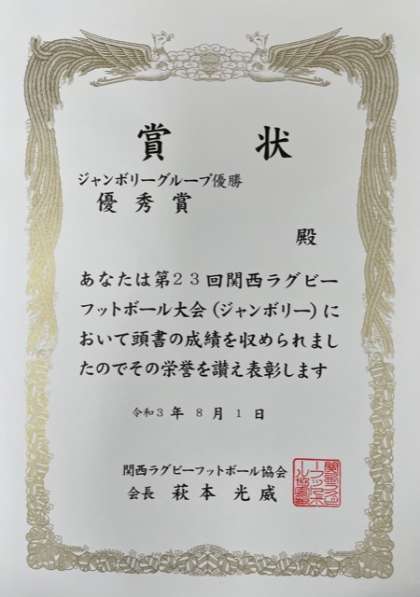 賞状
ジャンボリーグループ優勝
優秀賞
殿
あなたは第23回関西ラグビー
フットボール大会(ジャンボリー)に
おいて頭書の成績を収められまし
たのでその栄誉を讃え表彰します
令和3年8月1日
関西ラグビーフットボール協会
会長 萩本光威